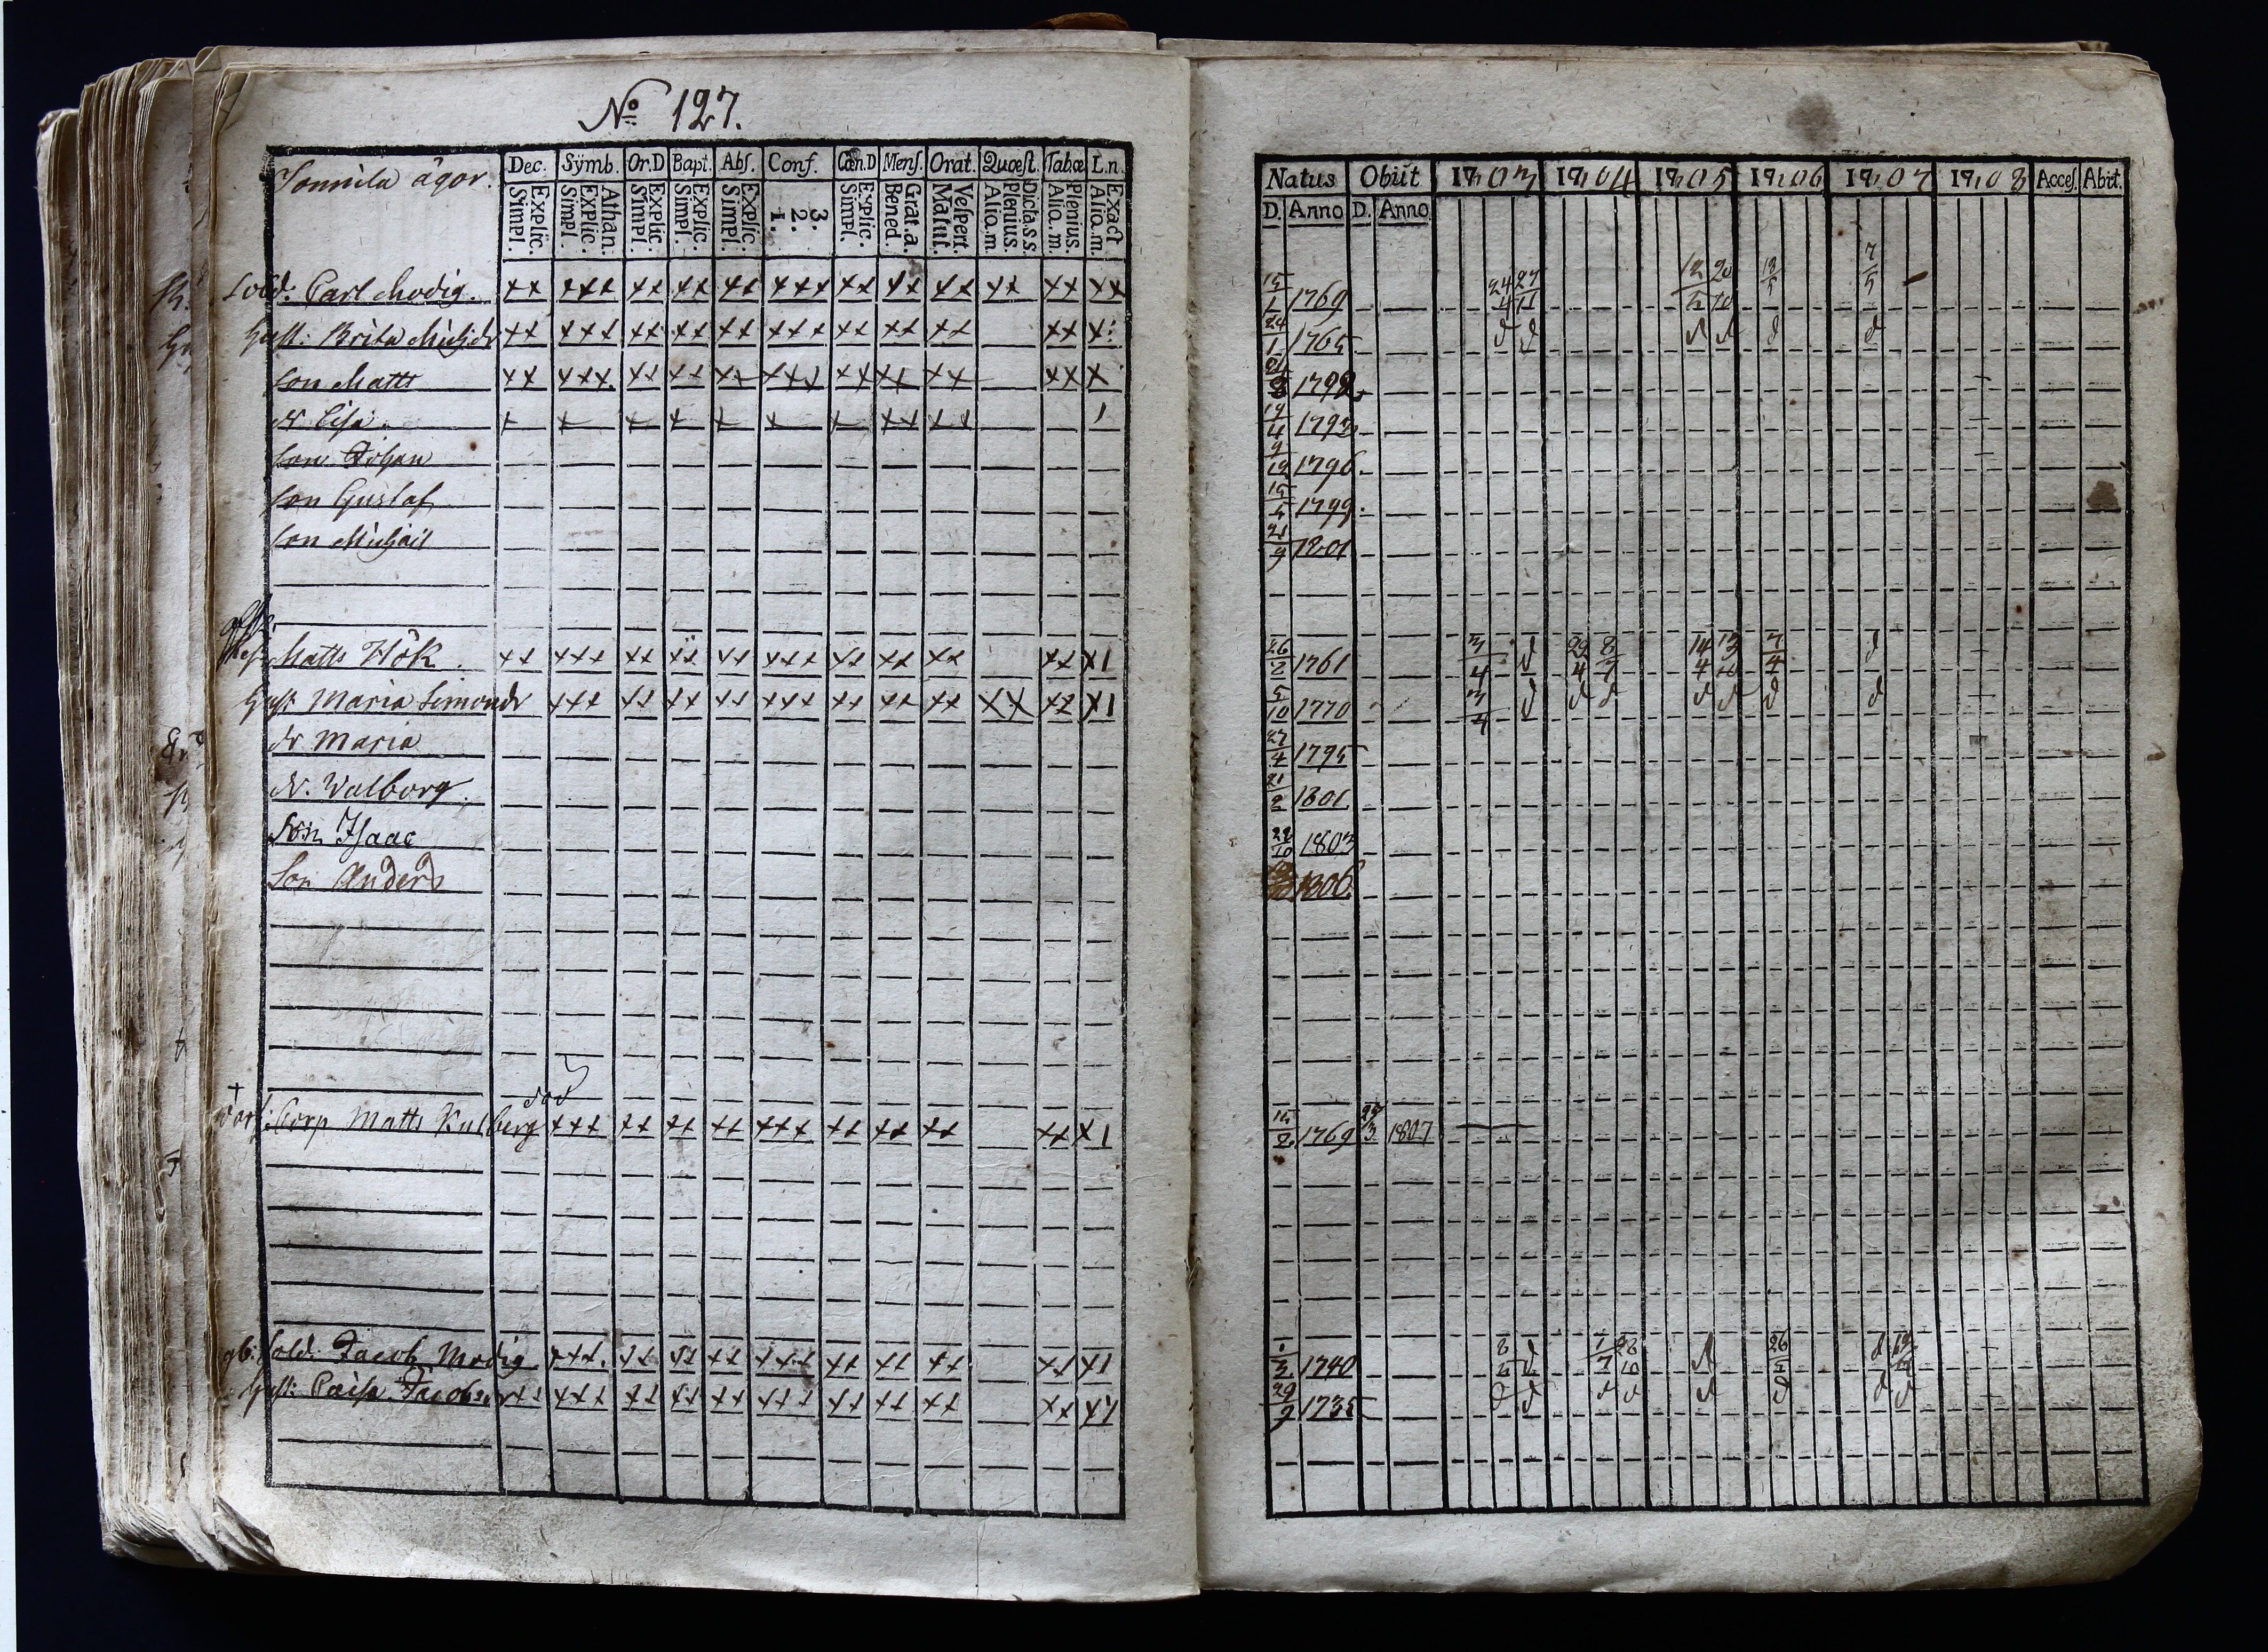 No 127.
Tomnila ägor.
Dec. Symb. Or.D Bapt. Abs. Conf. Cœn.D Mens. Orat. Quæst. Tabæ L.n.
Explic. Simpl. Athan. Explic. Simpl. Explic. Simpl. Explic. Simpl. Explic. Simpl. 3. 2. 1. Explic. Simpl. Grat.a. Bened. Vespert. Matut. Dicta.s.s. Plenius. Alio.m. Plenius. Alia.m. Exact Alia.m.
Sold. Carl Modig. xx xxx xx xx xx xxx xx xx xx xx xx xx
Hust: Brita Michsdr xx xxx xx xx xx xxx xx xx xx xx x
Son Matts xx xxx xx xx xx xxx xx xx xx xx x
dr Lisa x x x x x x x xx xx 1
Son Johan
Son Gustaf
Son Michail
Matts Hök xx xxx xx xx xx xxx xx xx xx xx x1
Hust Maria Simonsdr xxx xx xx xx xxx xx xx xx xx xx x1
dr Maria
dr. Walborg
Son Isaac
Son Anders
död
Corp Matts Kulberg xxx xx xx xx xxx xx xx xx xx x1
Sold. Jacob Modig xxx xx xx xx xxx xx xx xx xx x1
Hust: Caisa Jacobsdr xx xxx xx xx xx xxx xx xx xx xx x1
Natus Obiit 1803 1804 1805 1806 1807 1808 Acces. Abiit.
D. Anno D. Anno
15/1 1769 24/4 27/11 18/5 7/5
24/1 1765 d d d d d d
1798
19/4 1793
9/12 1796
1799
21/9 1801
26/2 1761 3/4 d 29/4 8/7 14/4 13/10 7/4 d
5/10 1770 3/4 d d d d d d d
27/4 1795
21/2 1801
22/10 1803
1806
15/2 1769 27/3 1807
1740 d d 26 d
29/9 1735 d d d d d d d d